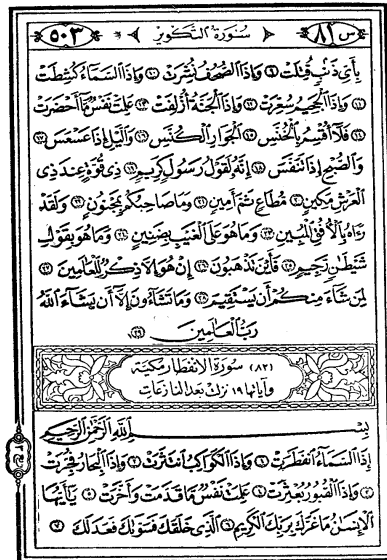 س ٨١ سورة التكوير ٥٠٣
بأى ذنب قتلت ٩ وإذا الصحف نشرت ١٠ وإذا السماء كشطت
١١ وإذا الجحيم سعرت ١٢ وإذا الجنة أزلفت ١٣ علمت نفس ما أحضرت
١٤ فلا أقسم بالخنس ١٥ الجوار الكنس ١٦ والليل إذا عسعس ١٧
والصبح إذا تنفس ١٨ إنه لقول رسول كريم ١٩ ذى قوة عند ذى
العرش مكين ٢٠ مطاع ثم أمين ٢١ وما صاحبكم بمجنون ٢٢ ولقد
رءاه بالأفق المبين ٢٣ وما هو على الغيب بضنين ٢٤ وما هو بقول
شيطن رجيم ٢٥ فأين تذهبون ٢٦ إن هو إلا ذكر للعالمين ٢٧
لمن شاء منكم أن يستقيم ٢٨ وما تشاءون إلا أن يشاء الله
رب العالمين ٢٩
(٨٢) سورة الانفطار مكية
وآياتها ١٩ نزلت بعد النازعات
بسم الله الرحمن الرحيم
إذا السماء انفطرت ١ وإذا الكواكب انتثرت ٢ وإذا البحار فجرت
٣ وإذا القبور بعثرت ٤ علمت نفس ما قدمت وأخرت ٥ يأيها
الإنسن ما غرك بربك الكريم ٦ الذى خلقك فسوىك فعدلك ٧